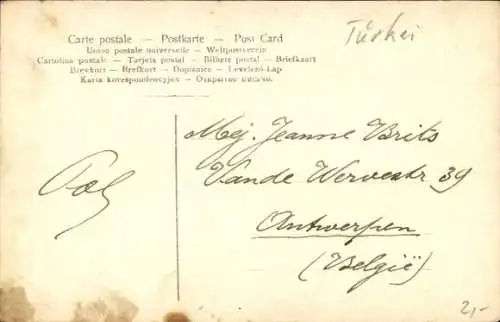 Carte postale – Postkarte – Post Card
Union postale universelle – Weltpostverein
Cartolina postale – Tarjeta postal – Bilhete postal – Briefkaart
Brevkort – Brefkort – Dopisnice – Levelező-Lap
Karta korespondencyjna – Открытое письмо.
Türkei
Mej. Jeanne Brits
Vande Wervestr 39
Antwerpen
(België)
2,-